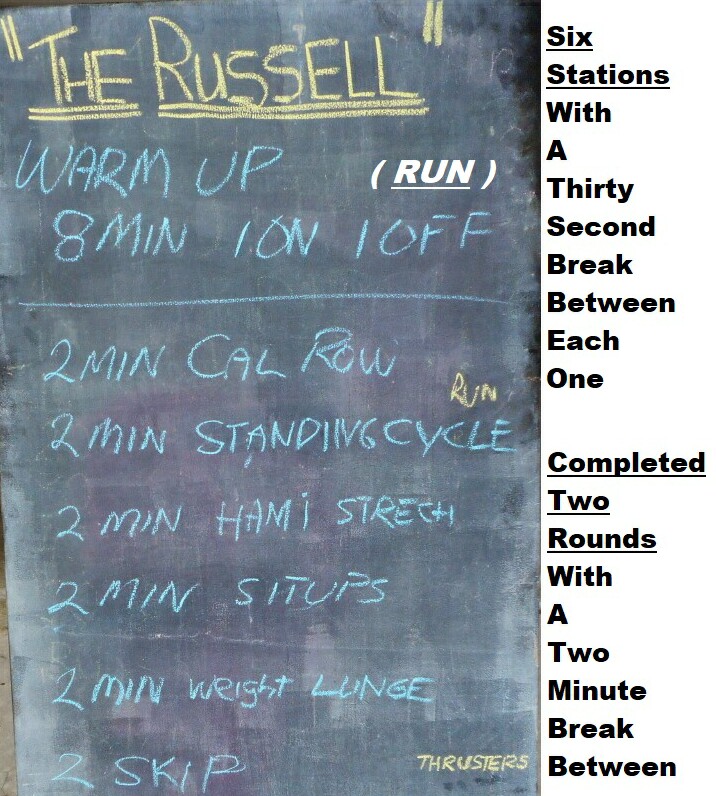 "THE RUSSELL"
WARM UP (RUN)
8 MIN 1 ON 1 OFF
2 MIN CAL ROW
RUN
2 MIN STANDING CYCLE
2 MIN HAMI STRECH
2 MIN SITUPS
2 MIN Weight LUNGE
2 SKIP THRUSTERS
Six
Stations
With
A
Thirty
Second
Break
Between
Each
One
Completed
Two
Rounds
With
A
Two
Minute
Break
Between